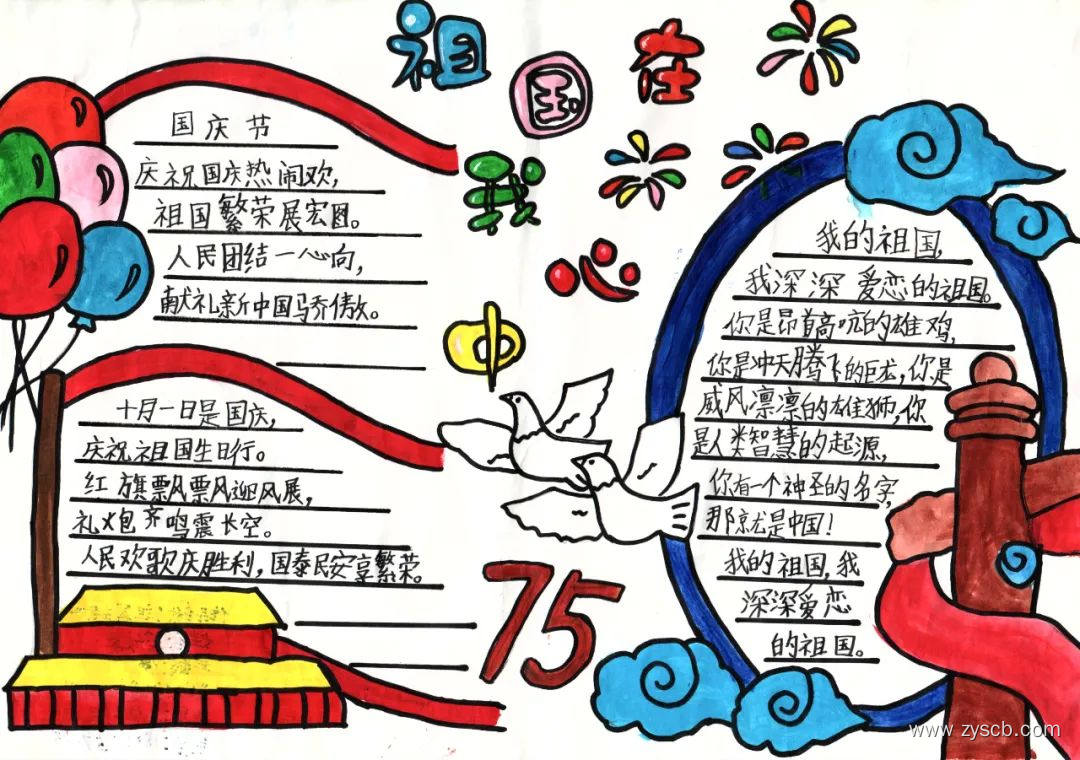 祖国在我心中
国庆节
庆祝国庆热闹欢，
祖国繁荣展宏图。
人民团结一心向，
献礼新中国马乔傲。
十月一日是国庆，
庆祝祖国生日行。
红旗飘飘迎风展，
礼炮齐鸣震长空。
人民欢歌庆胜利，国泰民安享繁荣。
75
我的祖国，
我深深爱恋的祖国。
你是昂首高吭的雄鸡，
你是冲天腾飞的巨龙，你是
威风凛凛的雄狮，你
是人类智慧的起源，
你有一个神圣的名字，
那就是中国！
我的祖国，我
深深爱恋
的祖国。
www.zyscb.com